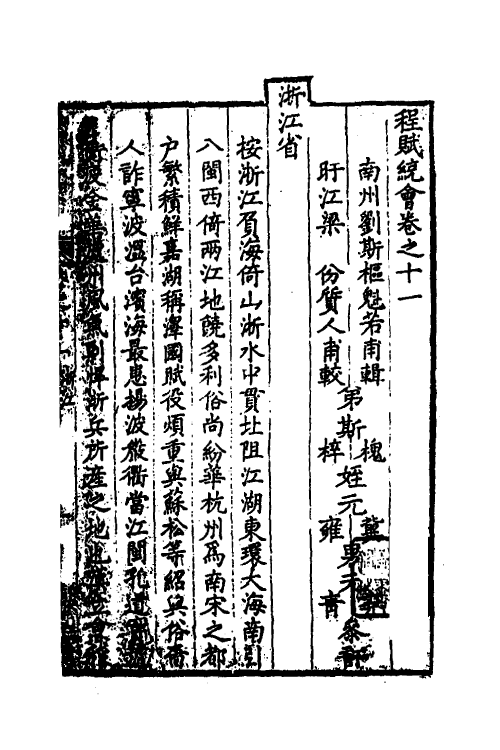 程賦統會卷之十一
南州劉斯樞魁若甫輯
盱江梁　份質人甫較
弟斯槐 梓
姪元 雍
男 青
叅訂
浙江省
按浙江頁海倚山浙水中貫北阻江湖東環大海南引
八閩西倚兩江地饒多利俗尚紛華杭州爲南宋之都
户繁積鮮嘉湖稱澤國賦役頗重與蘇松等紹興俗嗇
人詐寧波溫台濱海最患揚波嚴衢當江閩孔道
金 州 無 悍斯兵所產之地也